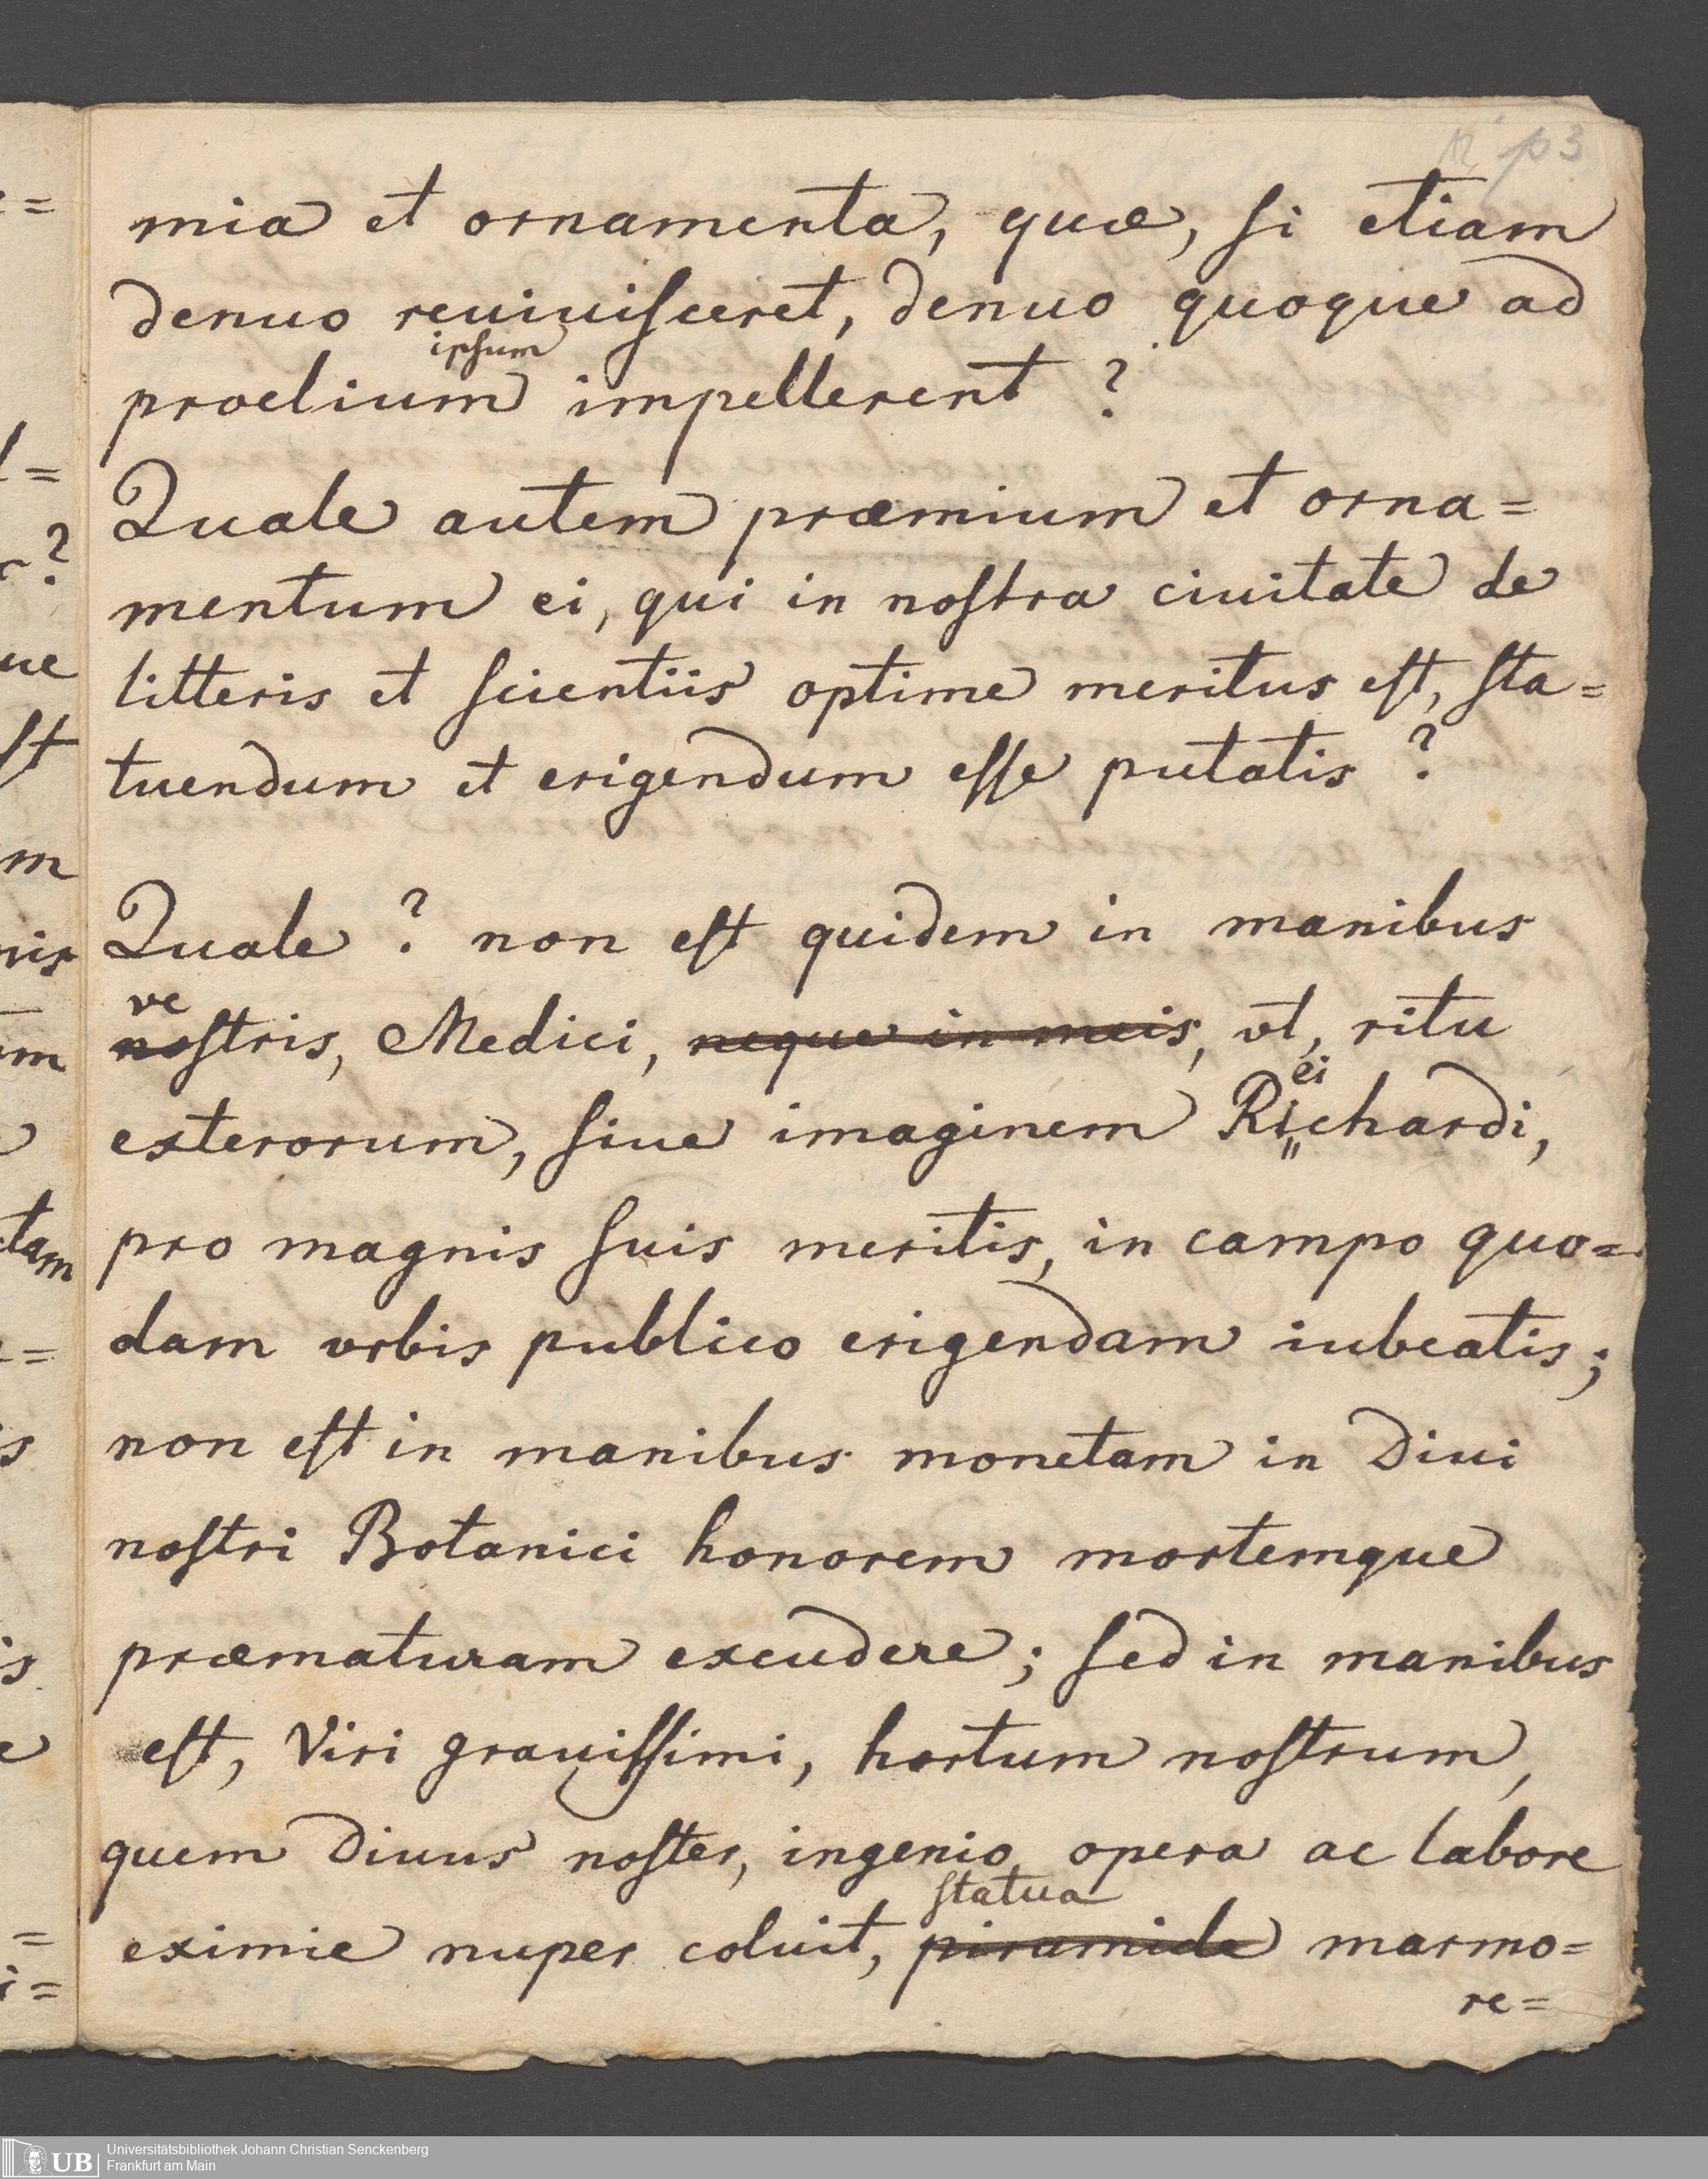 p 3
mia et ornamenta, quæ, si etiam
denuo reuiuisceret, denuo quoque ad
ipsum
proelium impellerent ?
Quale autem præmium et orna=
mentum ei, qui in nostra ciuitate de
litteris et scientiis optime meritus est, sta=
tuendum et erigendum esse putatis ?
Quale ? non est quidem in manibus
ve
nostris, Medici, neque in meis, vt, ritu
ei
exterorum, siue imaginem Richardi,
pro magnis suis meritis, in campo quo=
dam vrbis publico erigendam iubeatis;
non est in manibus monetam in Diui
nostri Botanici honorem mortemque
præmaturam excudere; sed in manibus
est, Viri grauissimi, hortum nostrum,
quem Diuus noster, ingenio, opera ac labore
statua
eximie nuper coluit, piramide marmo=
re=
UB Universitätsbibliothek Johann Christian Senckenberg
Frankfurt am Main